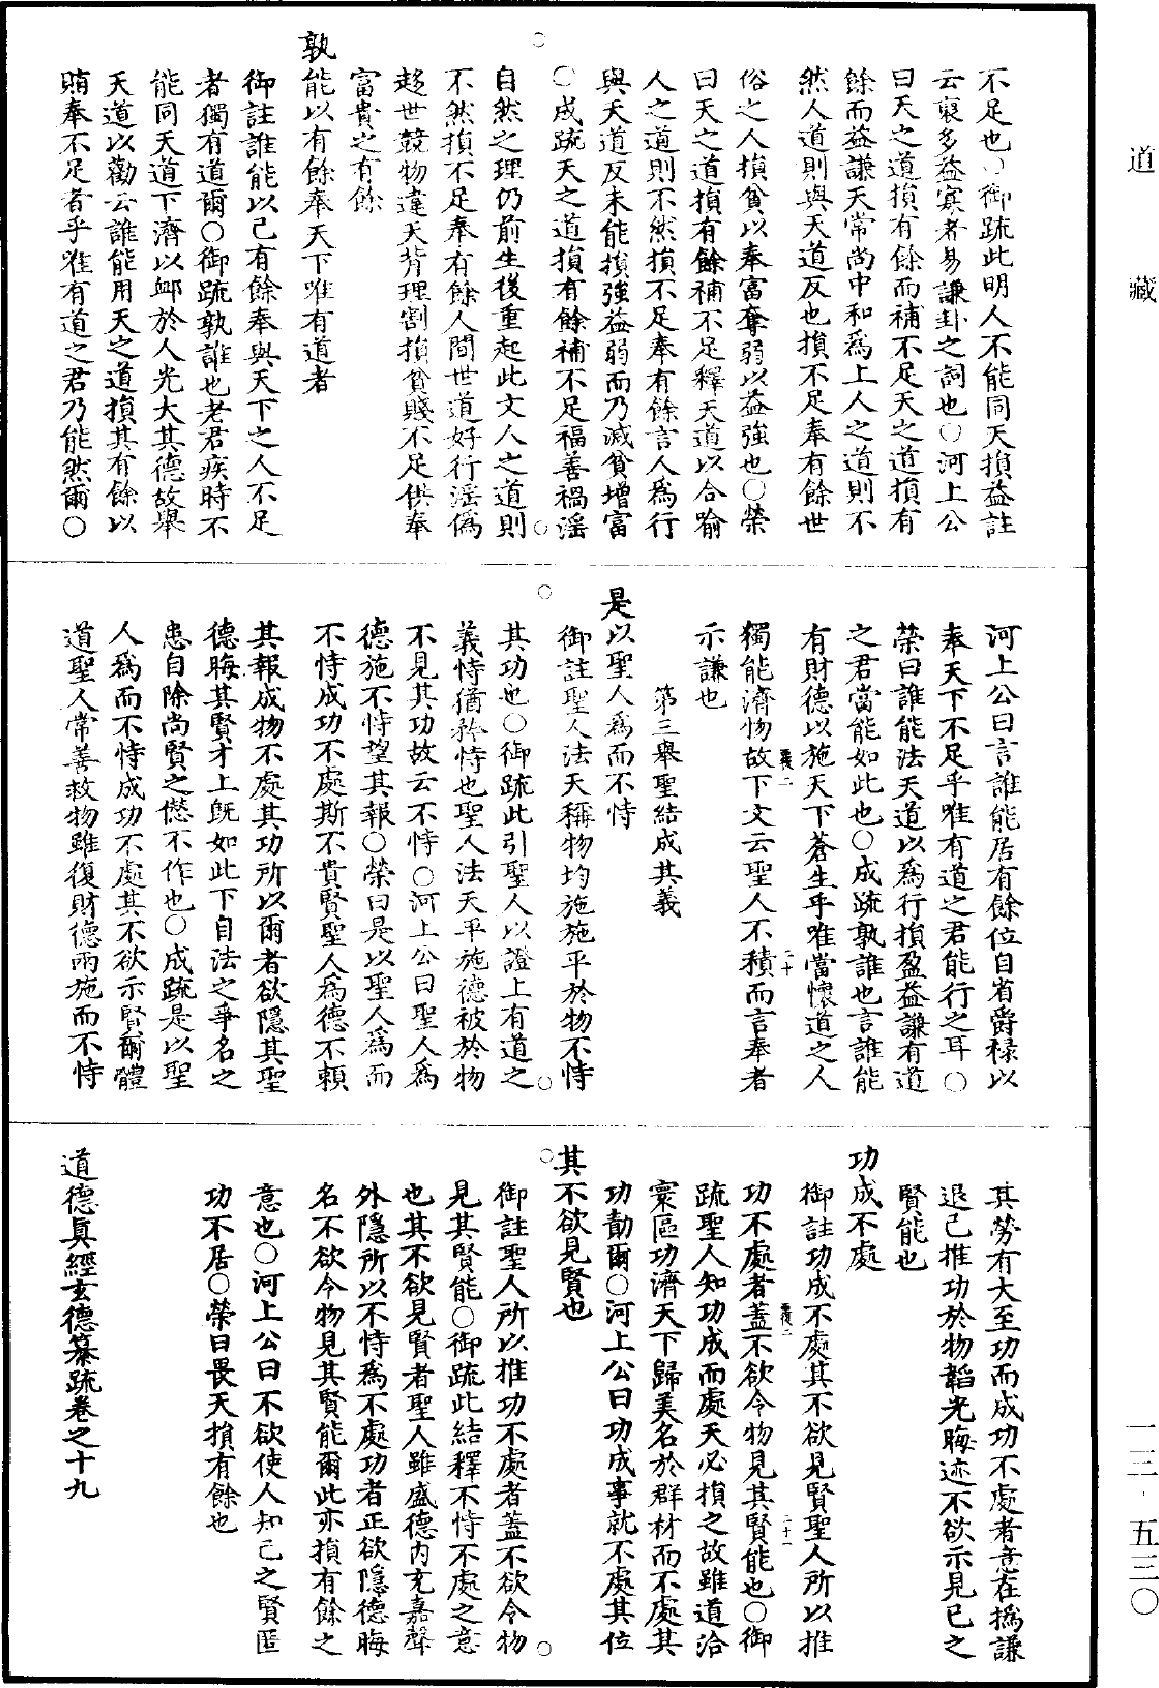 道藏
不足也○御疏此明人不能同天損益註
云裒多益寡者易謙卦之詞也○河上公
曰天之道損有餘而補不足天之道損有
餘而益謙天常尚中和為上人之道則不
然人道則與天道反也損不足奉有餘世
俗之人損貧以奉富奪弱以益強也○榮
曰天之道損有餘補不足釋天道以合喻
人之道則不然損不足奉有餘言人為行
與天道反未能損強益弱而乃減貧增富
○成疏天之道損有餘補不足福善禍淫
自然之理仍前生後重起此文人之道則
不然損不足奉有餘人間世道好行淫偽
趍世競物違天背理割損貧賤不足供奉
富貴之有餘
孰能以有餘奉天下唯有道者
御註誰能以己有餘奉與天下之人不足
者獨有道爾○御疏孰誰也老君疾時不
能同天道下濟以卹於人光大其德故舉
天道以勸云誰能用天之道損其有餘以
賄奉不足者乎唯有道之君乃能然爾○
河上公曰言誰能居有餘位自省爵祿以
奉天下不足乎唯有道之君能行之耳○
榮曰誰能法天道以為行損盈益謙有道
之君當能如此也○成疏孰誰也言誰能
有財德以施天下蒼生乎唯當懷道之人
獨能濟物故下文云聖人不積而言奉者
示謙也
第三舉聖結成其義
是以聖人為而不恃
御註聖人法天稱物均施施平於物不恃
其功也○御疏此引聖人以證上有道之
義恃猶矜恃也聖人法天平施德被於物
不見其功故云不恃○河上公曰聖人為
德施不恃望其報○榮曰是以聖人為而
不恃成功不處斯不貴賢聖人為德不賴
其報成物不處其功所以爾者欲隱其聖
德晦其賢才上既如此下自法之爭名之
患自除尚賢之㦣不作也○成疏是以聖
人為而不恃成功不處其不欲示賢爾體
道聖人常善救物雖復財德兩施而不恃
其勞有大至功而成功不處者意在撝謙
退己推功於物韜光晦迹不欲示見己之
賢能也
功成不處
御註功成不處其不欲見賢聖人所以推
功不處者蓋不欲令物見其賢能也○御
疏聖人知功成而處天必損之故雖道洽
寰區功濟天下歸美名於群材而不處其
功勣爾○河上公曰功成事就不處其位
其不欲見賢也
御註聖人所以推功不處者蓋不欲令物
見其賢能○御疏此結釋不恃不處之意
也其不欲見賢者聖人雖盛德內充嘉聲
外隱所以不恃為不處功者正欲隱德晦
名不欲令物見其賢能爾此亦損有餘之
意也○河上公曰不欲使人知己之賢匿
功不居○榮曰畏天損有餘也
道德真經玄德纂疏卷之十九
一三-五三○